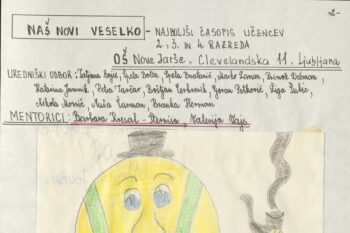 -2-
NAŠ NOVI VESELKO - NAJBOLJŠI ČASOPIS UČENCEV
2., 3. IN 4. RAZREDA
OŠ Nove Jarše, Clevelandska 11, Ljubljana
UREDNIŠKI ODBOR: Tatjana Bojić, Špela Bolta, Špela Marko Zaman, Primož Dežman,
Katarina Jamnik, Petra Tančar, Boštjan Goran Potković, Žiga Šubic,
Nikola Monić, Maša Laxman, Branka Herman
MENTORICI: Barbara Kresal - Sternisa, Valerija Vajs